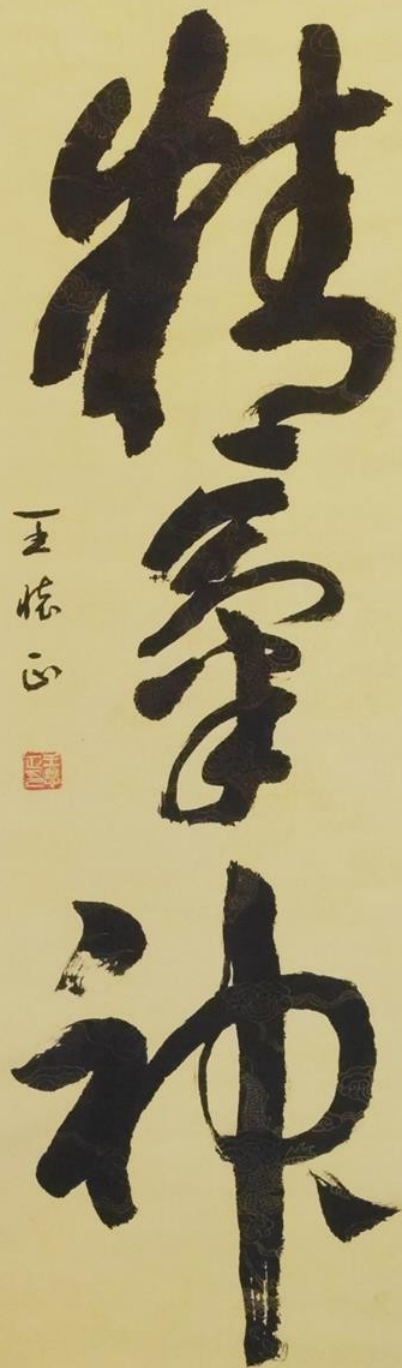 精氣神
王懷正